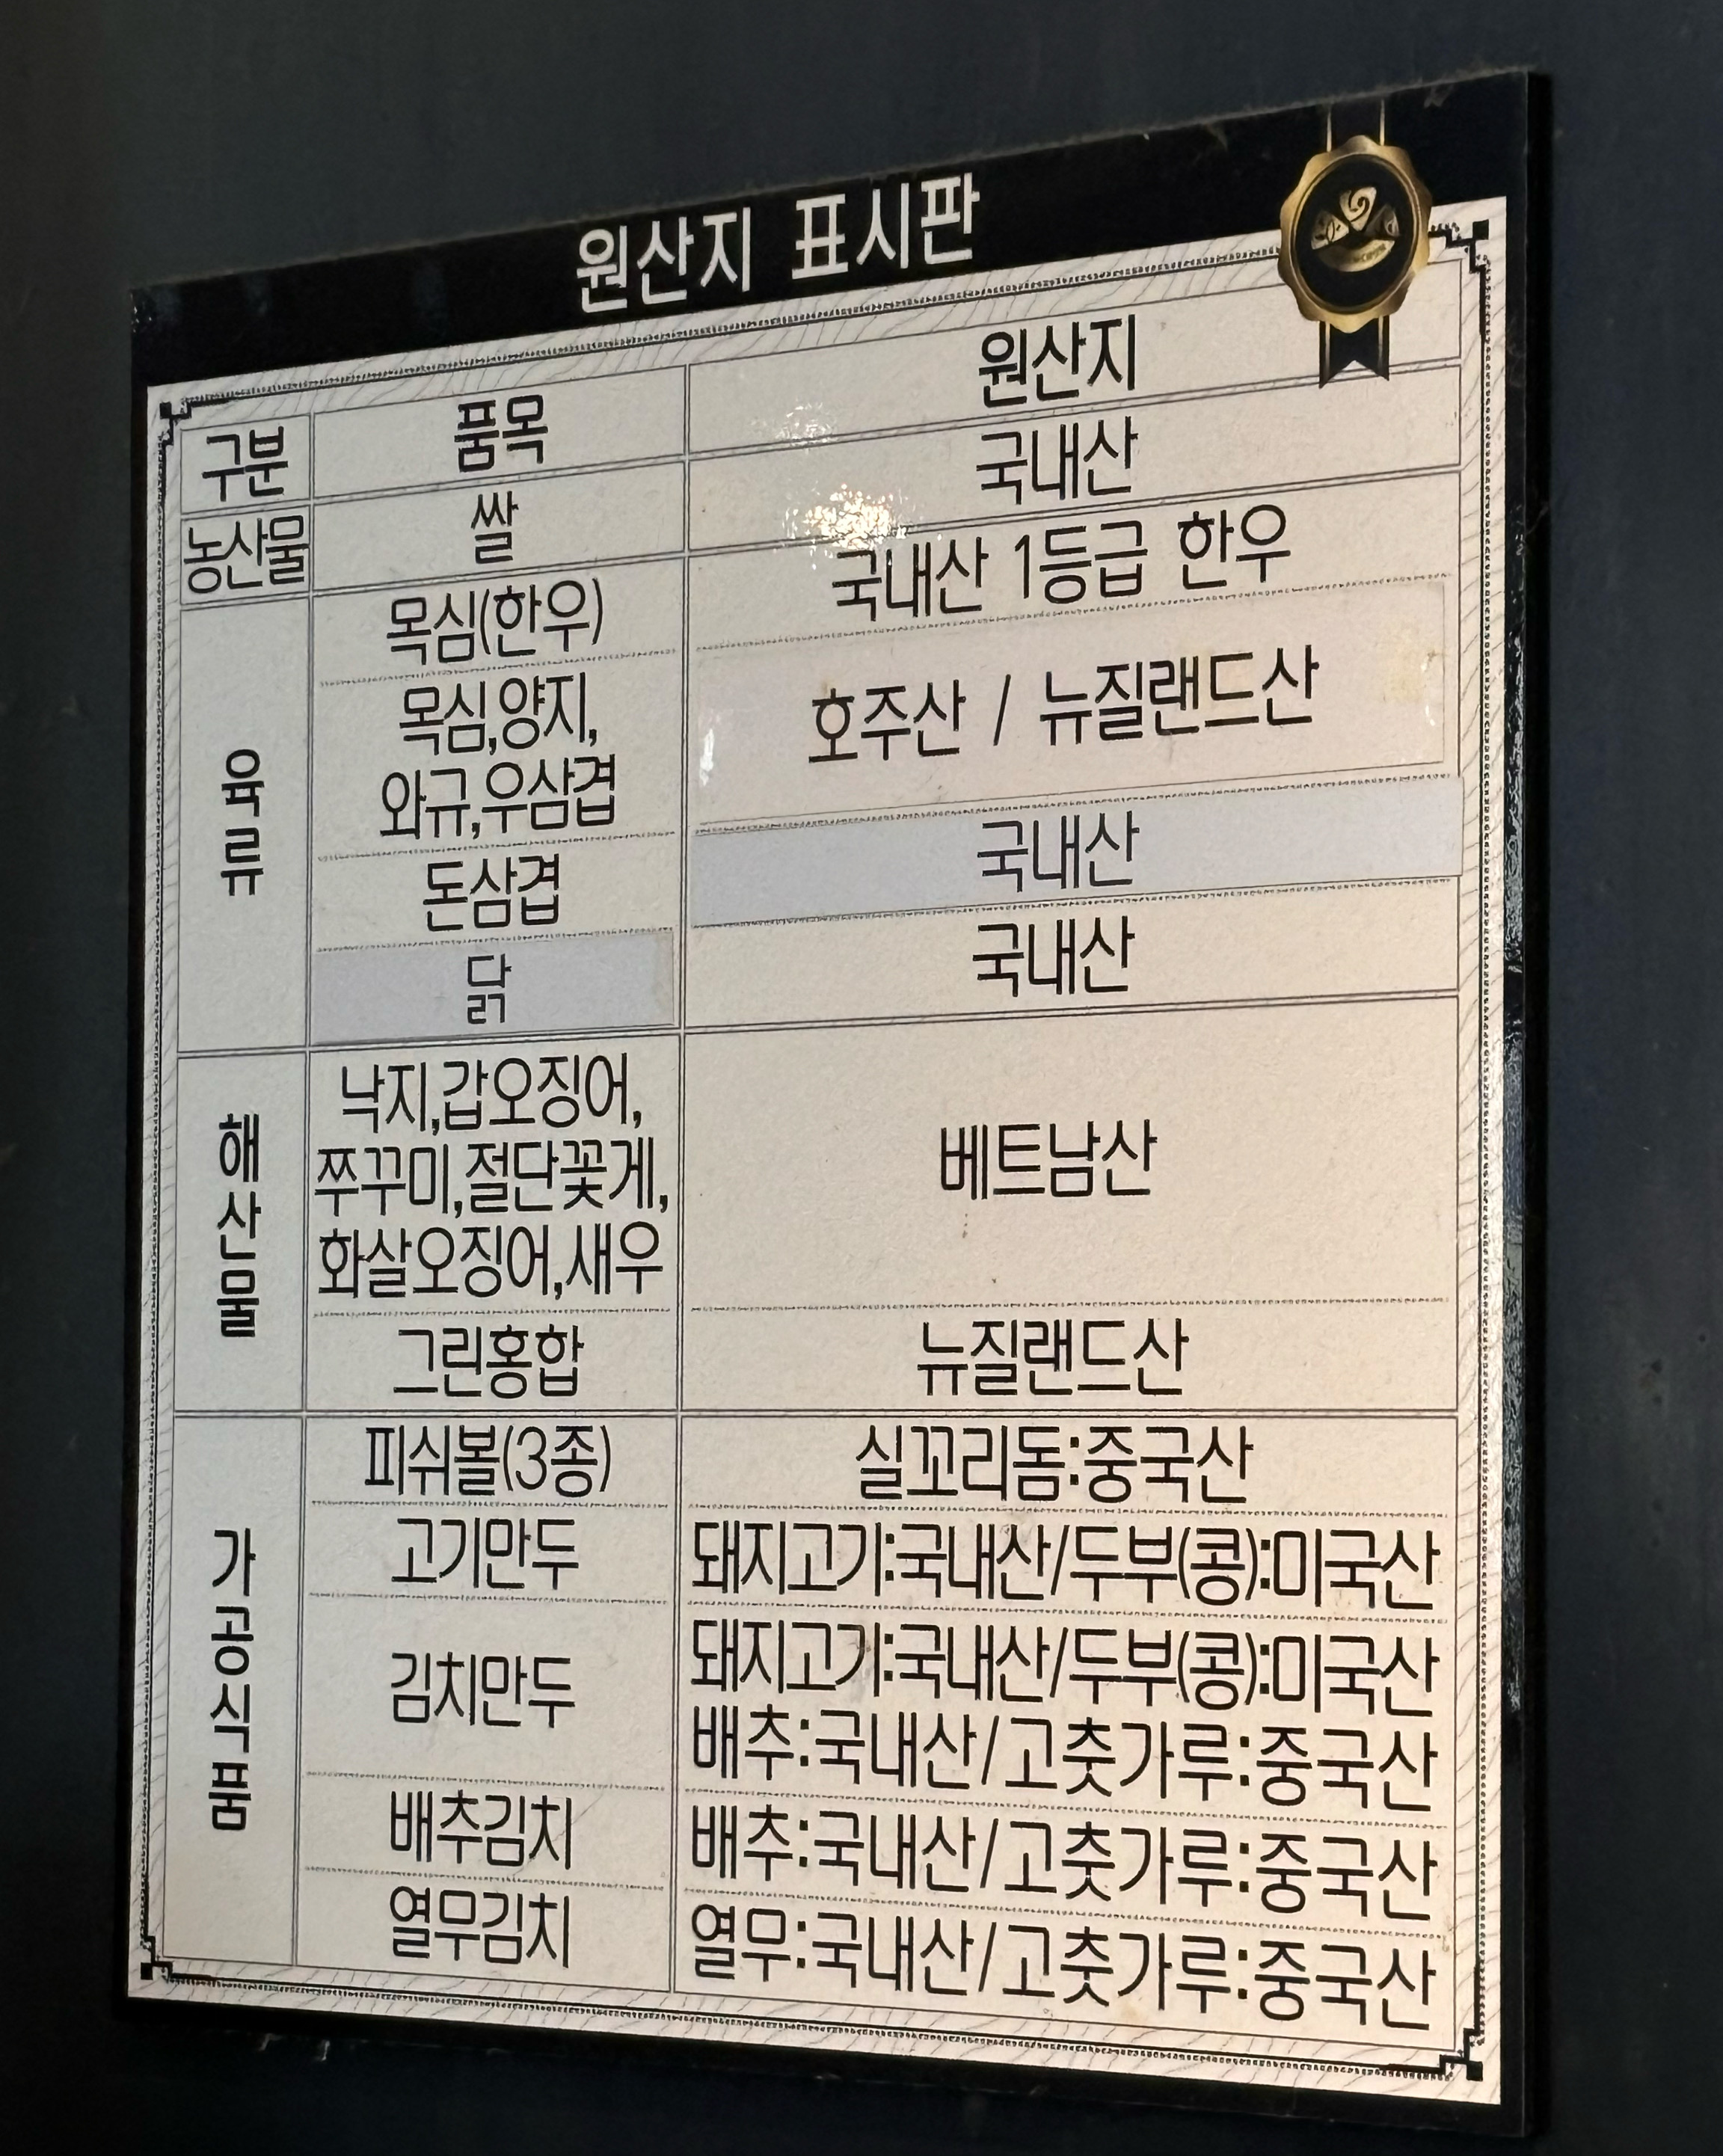 원산지 표시판
구분 품목 원산지
농산물 쌀 국내산
육류
목심(한우) 국내산 1등급 한우
목심,양지,
와규,우삼겹 호주산 / 뉴질랜드산
돈삼겹 국내산
닭 국내산
해산물
낙지,갑오징어,
쭈꾸미,절단꽃게,
화살오징어,새우 베트남산
그린홍합 뉴질랜드산
가공식품
피쉬볼(3종) 실꼬리돔:중국산
고기만두 돼지고기:국내산/두부(콩):미국산
김치만두 돼지고기:국내산/두부(콩):미국산
배추:국내산/고춧가루:중국산
배추김치 배추:국내산/고춧가루:중국산
열무김치 열무:국내산/고춧가루:중국산